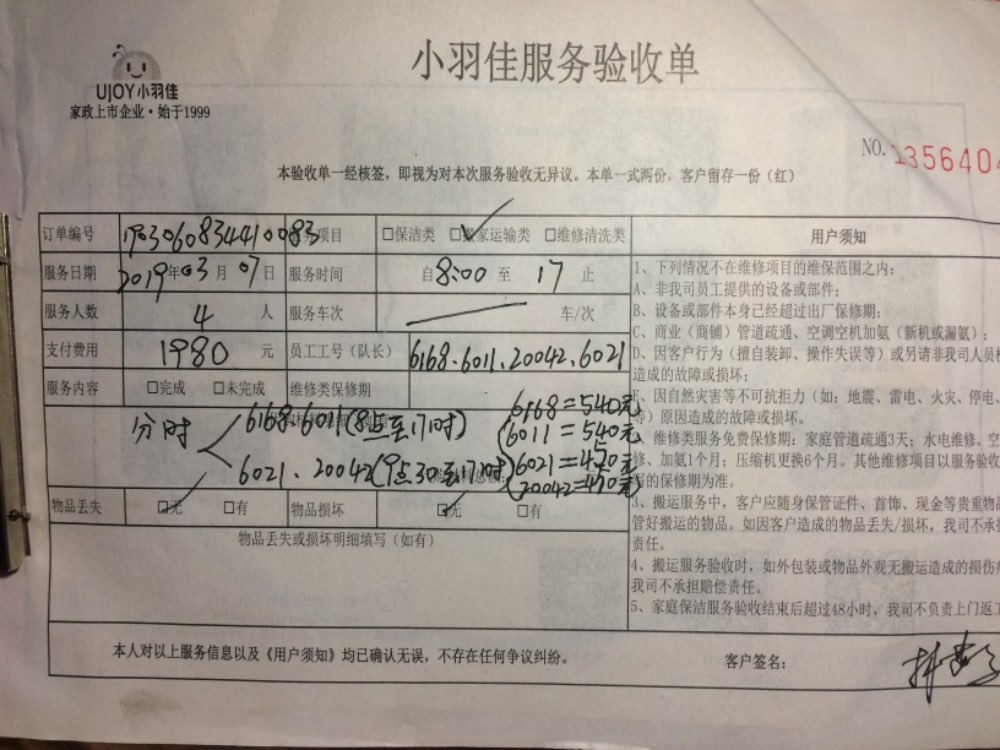 小羽佳服务验收单
UJOY小羽佳
家政上市企业·始于1999
NO. 1356404
本验收单一经核签，即视为对本次服务验收无异议。本单一式两份，客户留存一份（红）
订单编号 1903060834410083 项目 □保洁类 □搬家运输类 □维修清洗类
服务日期 2019年03月07日 服务时间 自8:00至17止
服务人数 4人 服务车次 车/次
支付费用 1980元 员工工号（队长） 6168.6011.20042.6021
服务内容 □完成 □未完成 维修类保修期
分时
6168.6011(8点至17时)
6021.20042(9点30至17时)
6168=540元
6011=540元
6021=450元
20042=450元
物品丢失 □无 □有 物品损坏 □无 □有
物品丢失或损坏明细填写（如有）
用户须知
1、下列情况不在维修项目的维保范围之内：
A、非我司员工提供的设备或部件；
B、设备或部件本身已经超过出厂保修期；
C、商业（商铺）管道疏通、空调空机加氨（新机或漏氨）；
D、因客户行为（擅自装卸、操作失误等）或另请非我司人员
造成的故障或损坏；
E、因自然灾害等不可抗拒力（如：地震、雷电、火灾、停电、
等）原因造成的故障或损坏。
、维修类服务免费保修期：家庭管道疏通3天；水电维修、空
修、加氨1个月；压缩机更换6个月。其他维修项目以服务验收
的保修期为准。
3、搬运服务中，客户应随身保管证件、首饰、现金等贵重物品
管好搬运的物品。如因客户造成的物品丢失/损坏，我司不承担
责任。
4、搬运服务验收时，如外包装或物品外观无搬运造成的损伤
我司不承担赔偿责任。
5、家庭保洁服务验收结束后超过48小时，我司不负责上门返工
本人对以上服务信息以及《用户须知》均已确认无误，不存在任何争议纠纷。 客户签名：